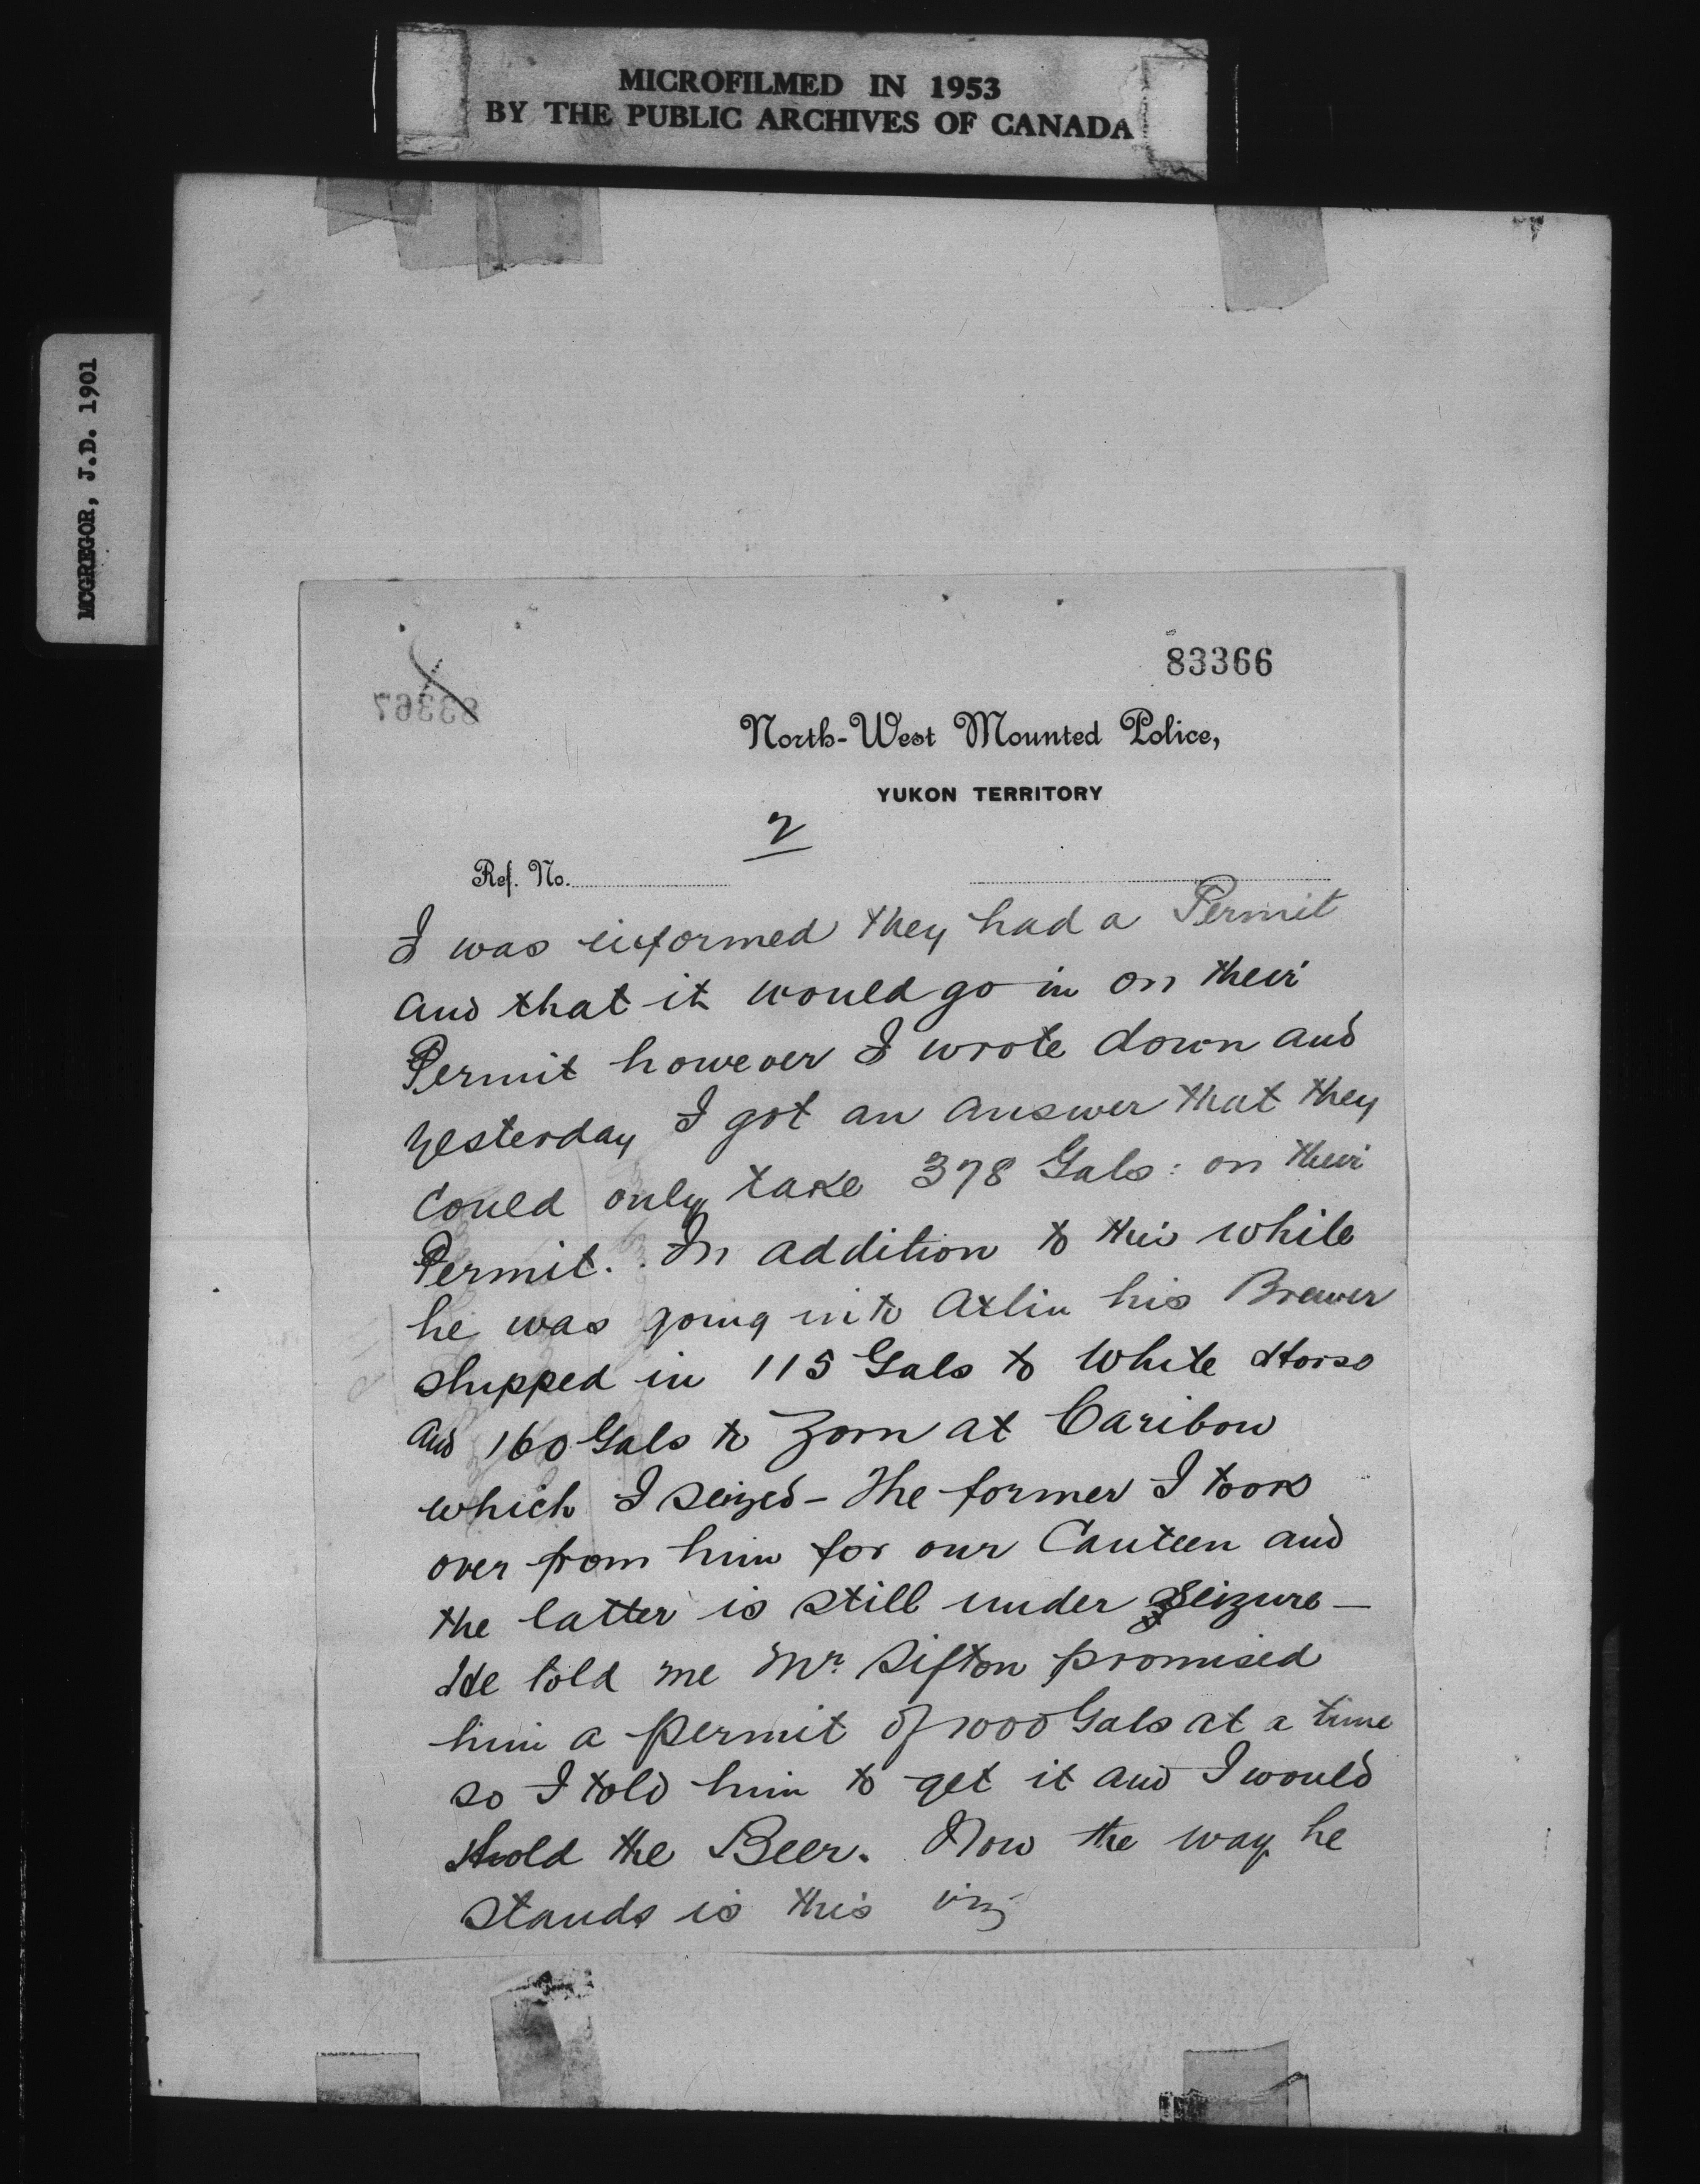 MICROFILMED IN 1953
BY THE PUBLIC ARCHIVES OF CANADA
MCGREGOR, J.D. 1901
83366
83367
North-West Mounted Police,
YUKON TERRITORY
2
Ref. No.
I was informed they had a Permit
and that it would go in on their
Permit however I wrote down and
yesterday I got an answer that they
could only take 378 Gals: on their
Permit. In addition to this while
he was going into Atlin his Brewer
shipped in 115 Gals to White Horse
and 160 Gals to Zorn at Caribow
which I seized - The former I took
over from him for our Canteen and
the latter is still under Seizure -
He told me Mr. Sifton promised
him a permit of 1000 Gals at a time
so I told him to get it and I would
hold the Beer. Now the way he
stands is this viz